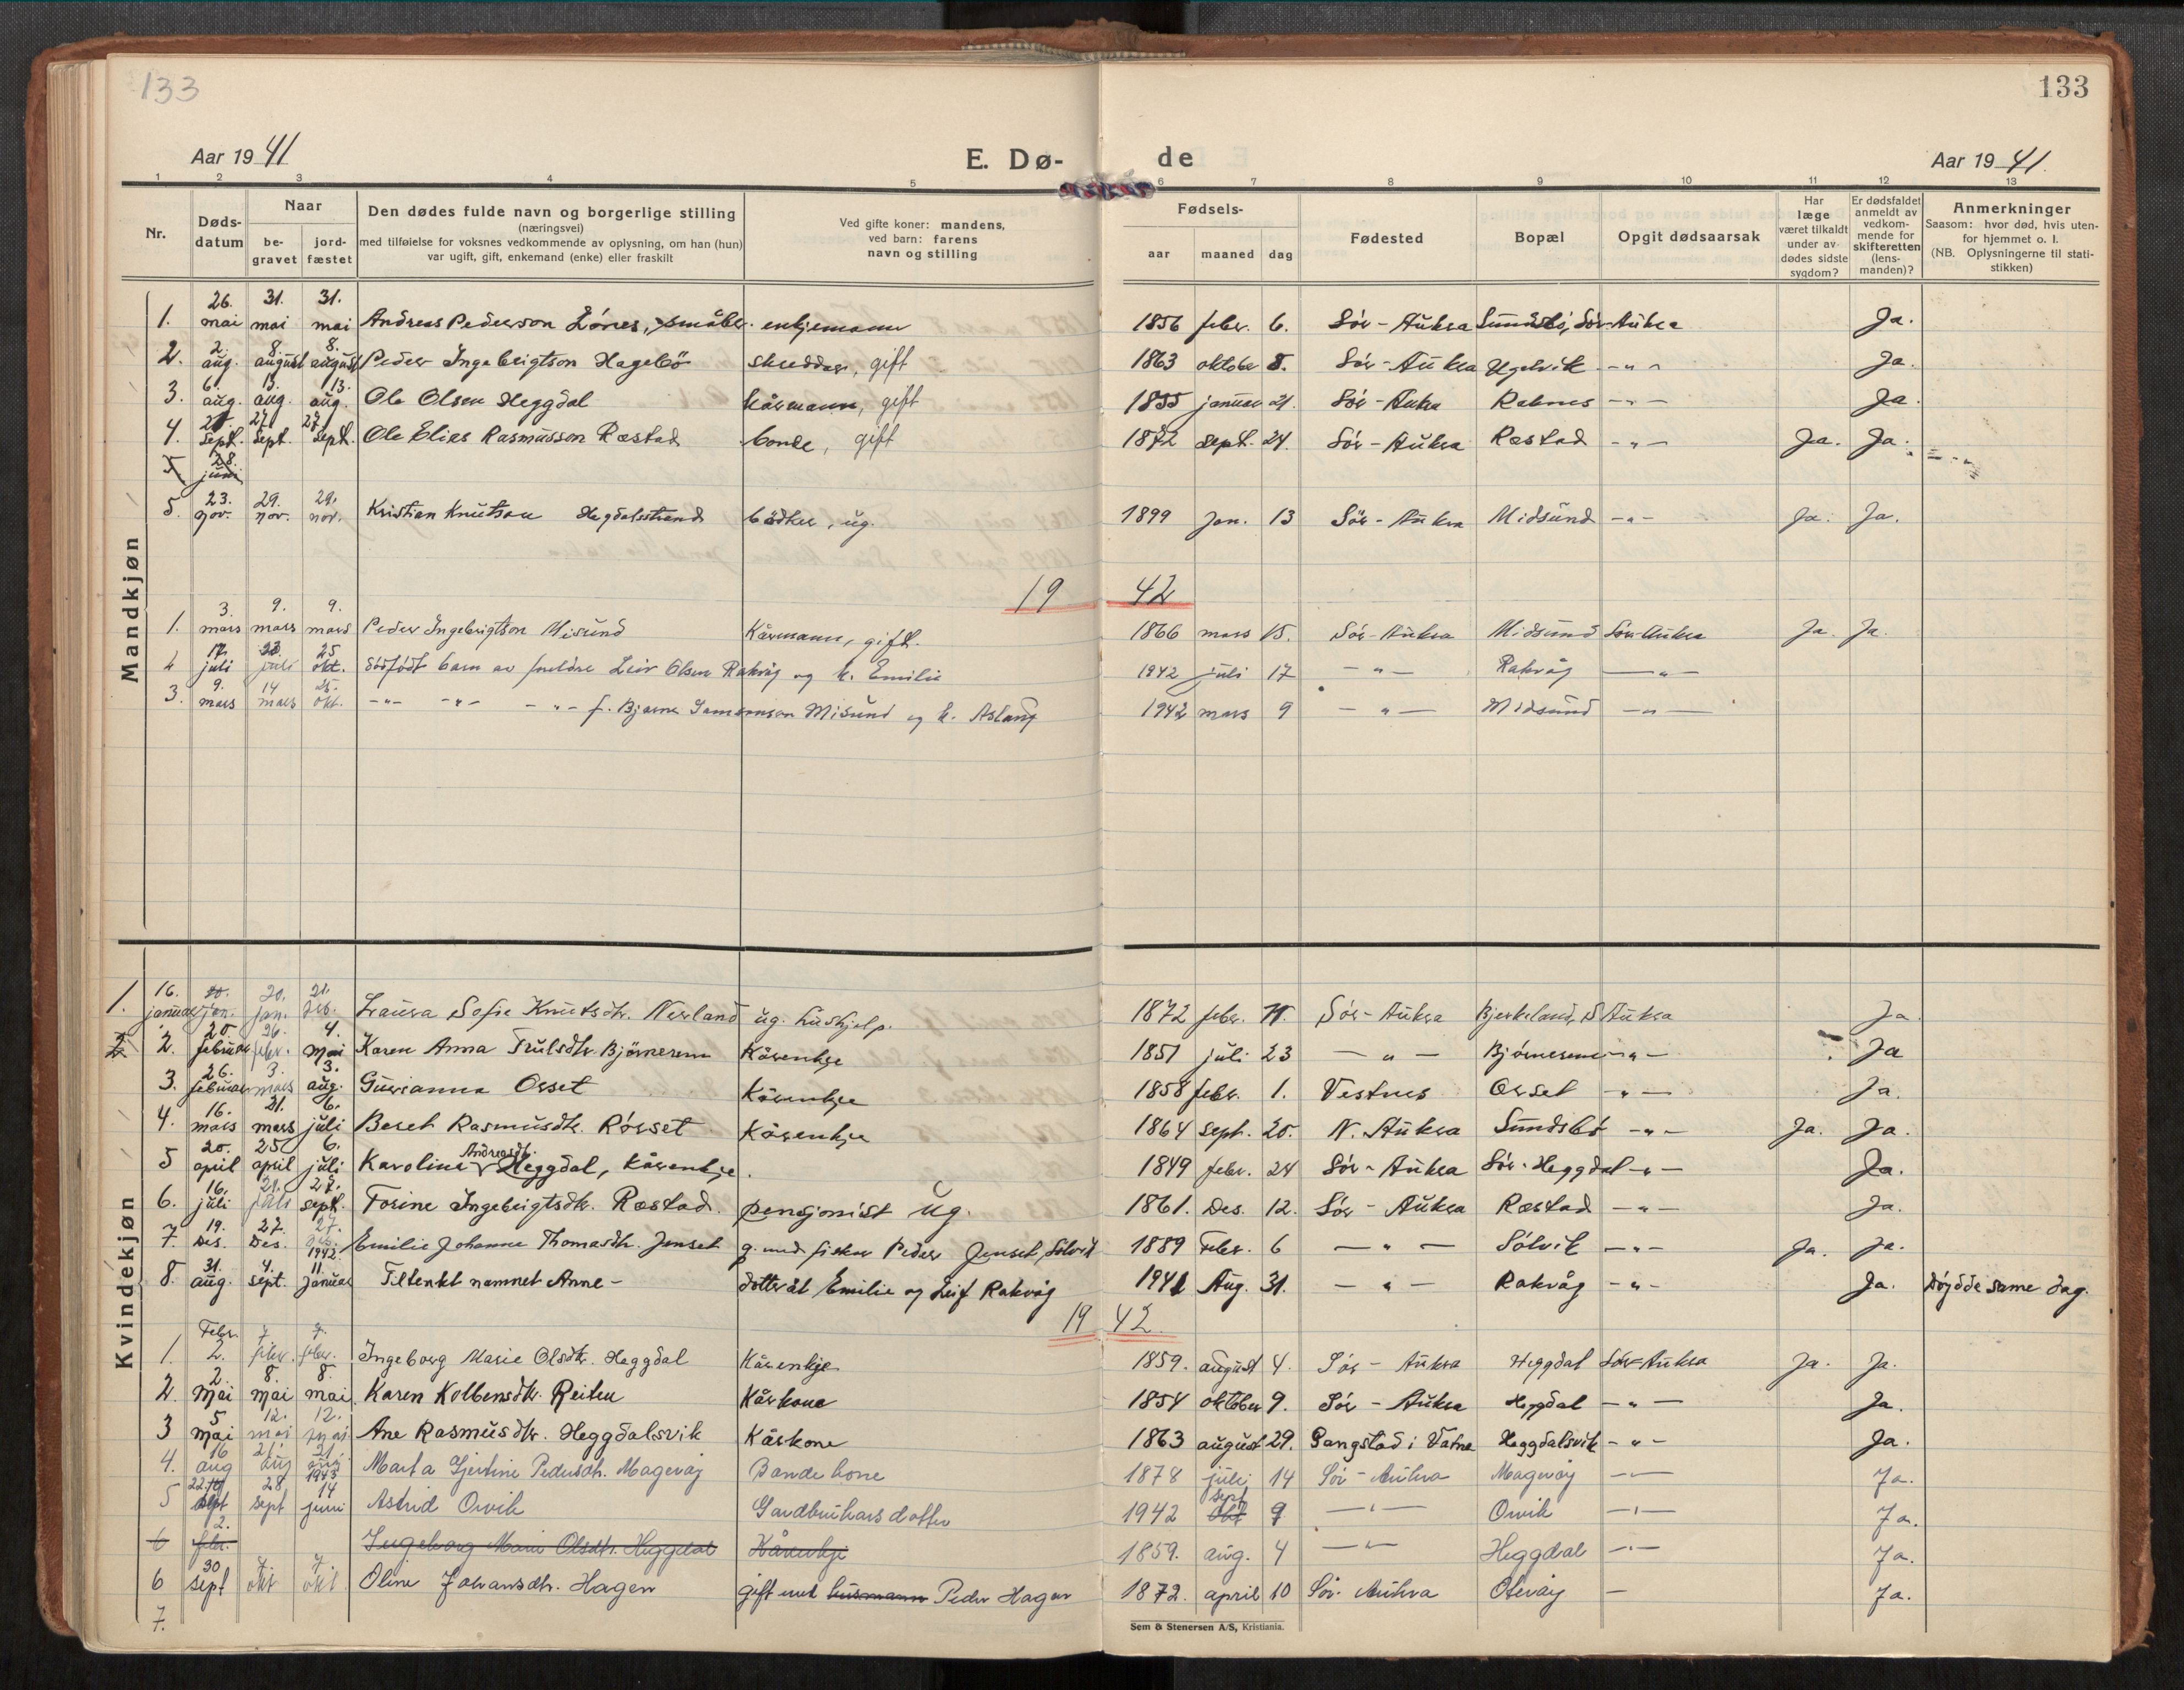 133
133
Aar 1941
E. Dø-
de
Aar 1941.
1 2 3 4 5 6 7 8 9 10 11 12 13
Nr.
Døds-
datum
Naar
be-
gravet
jord-
fæstet
Den dødes fulde navn og borgerlige stilling
(næringsvei)
med tilføielse for voksnes vedkommende av oplysning, om han (hun)
var ugift, gift, enkemand (enke) eller fraskilt
Ved gifte koner: mandens,
ved barn: farens
navn og stilling
Fødsels-
aar maaned dag
Fødested
Bopæl
Opgit dødsaarsak
Har
læge
været tilkaldt
under av-
dødes sidste
sygdom?
Er dødsfaldet
anmeldt av
vedkom-
mende for
skifteretten
(lens-
manden)?
Anmerkninger
Saasom: hvor død, hvis uten-
for hjemmet o. l.
(NB. Oplysningerne til stati-
stikken)
Mandkjøn
1. 26. mai 31. mai 31. mai Andreas Pederson Lönes, småbr. enkjemann 1856 febr. 6. Sör-Aukra Sundsbö, Sör-Aukra Ja.
2. 2. aug. 8. august 8. august Peder Ingebrigtson Hagebö skreddar, gift 1863 oktober 8. Sör-Aukra Ugelvik -"- Ja.
3. 6. aug. 13. aug. 13. aug. Ole Olsen Heggdal kårmann, gift 1855 januar 21. Sör-Aukra Raknes -"- Ja.
4. sept. 27 sept. 27 sept. Ole Elias Rasmusson Ræstad bonde, gift 1872 sept. 24. Sör-Aukra Ræstad -"- Ja. Ja.
5 28. juni
5. 23. nov. 29. nov. 29. nov. Kristian Knutson Hegdalsstrand bödker, ug. 1899 jan. 13 Sör-Aukra Midsund -"- Ja. Ja.
19 42
1. 3. mars 9. mars 9. mars Peder Ingebrigtson Misund Kårmann, gift. 1866 mars 15. Sör-Aukra Midsund Sör-Aukra Ja. Ja.
2 17. juli juli 25 okt. Dödfödt barn av foreldre Leiv Olsen Rakvåg og k. Emilie 1942 juli 17 -"- Rakvåg -"-
3. 9. mars 14 mars 25. okt. -"- -"- -"- f. Bjarne Samsonson Misund og k. Aslaug 1942 mars 9 -"- Midsund -"-
Kvindekjøn
1. 16. januar 20. jan. 20. jan. 21. feb. Laura Sofie Knutsdtr. Nerland ug. hushjelp. 1872 febr. 11. Sör-Aukra Bjerkeland, S Aukra Ja
2 2. 20. februar 26. febr. 4. mai Karen Anna Trulsdtr. Björnerem Kårenkje 1851 juli 23 -"- Björnerem -"- Ja
3. 26. februar 3. mars 3. aug. Gurianna Orset Kårenkje 1858 febr. 1. Vestnes Orset -"- Ja.
4. 16. mars 21. mars 6. juli Beret Rasmusdtr. Rörset Kårenkje 1864 sept. 20. N. Aukra Sundsbö -"- Ja. Ja.
5 20. april 25 april 6. juli Karoline Andreasdt. Heggdal, kårenkje. 1849 febr. 24 Sör-Aukra Sör-Heggdal -"- Ja.
6. 16. juli 21. juli 27. sept. Torine Ingebrigtsdtr. Ræstad. pensjonist ug. 1861. Des. 12. Sör-Aukra Ræstad -"- Ja.
7. 19. Des. 27. Des. 27. 1942. Emilie Johanne Thomasdtr. Jenset g. med fisker Peder Jenset, Sölvik 1889 Febr. 6 -"- Sölvik -"- Ja. Ja.
8. 31. aug. 4. sept. 11. januar Tiltenkt namnet Anne - dotter åt Emilie og Leif Rakvåg 1941 Aug. 31. -"- Rakvåg -"- Ja. Döydde same dag.
19 42
1. Febr. 2. 7 febr. 7. febr. Ingeborg Marie Olsdtr. Heggdal Kårenkje 1859. august 4. Sör-Aukra Heggdal Sör-Aukra Ja. Ja.
2. 2. mai 8. mai 8. mai Karen Kolbensdtr. Reiten Kårkone 1854 oktober 9. Sör-Aukra Heggdal -"- Ja.
3 5 mai 12. mai 12. mai Ane Rasmusdtr. Heggdalsvik Kårkone 1863 august 29. Gangstad i Vatne Heggdalsvik -"- Ja.
4. 16 aug 21. aug 21. aug. 1943 Marta Gjertine Pedersdtr. Magerøy Bondekone 1878 juli 14 Sör-Aukra Magerøy -"- Ja.
5 22. sept 28 sept 14 juni Astrid Orvik Gardbrukarsdotter 1942 sept 9 -"- Orvik -"- Ja.
6 2. febr. Ingeborg Marie Olsdtr. Heggdal Kårenkje 1859. aug. 4 -"- Heggdal -"- Ja.
6 30 sept 7. okt 7. okt. Oline Johansdtr. Hagen gift med husmann Peder Hagen 1872. april 10 Sör-Aukra Oterøy - Ja.
7.
Sem & Stenersen A/S, Kristiania.